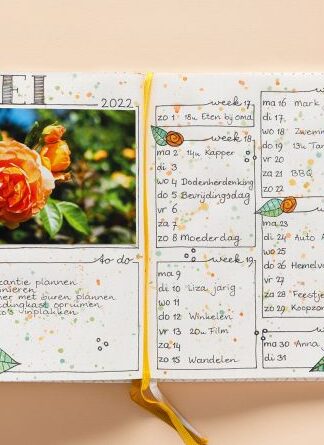 EI
2022
to do
plannen
met buren plannen
opruimen
vinplakken
week 17
zo 1 18u Eten bij oma
week 18
ma 2 14u Kapper
di 3
wo 4 Dodenherdenking
do 5 Bevrijdingsdag
vr 6
za 7
zo 8 Moederdag
week 19
ma 9
di 10 Liza jarig
wo 11
do 12 Winkelen
vr 13 20u Film
za 14
zo 15 Wandelen
ma 16 Mark
di 17
wo 18
do 19 13u
vr 20
za 21 BBQ
zo 22
ma 23
di 24 Auto
wo 25
do 26
vr 27
za 28
zo 29
ma 30 Anna
di 31